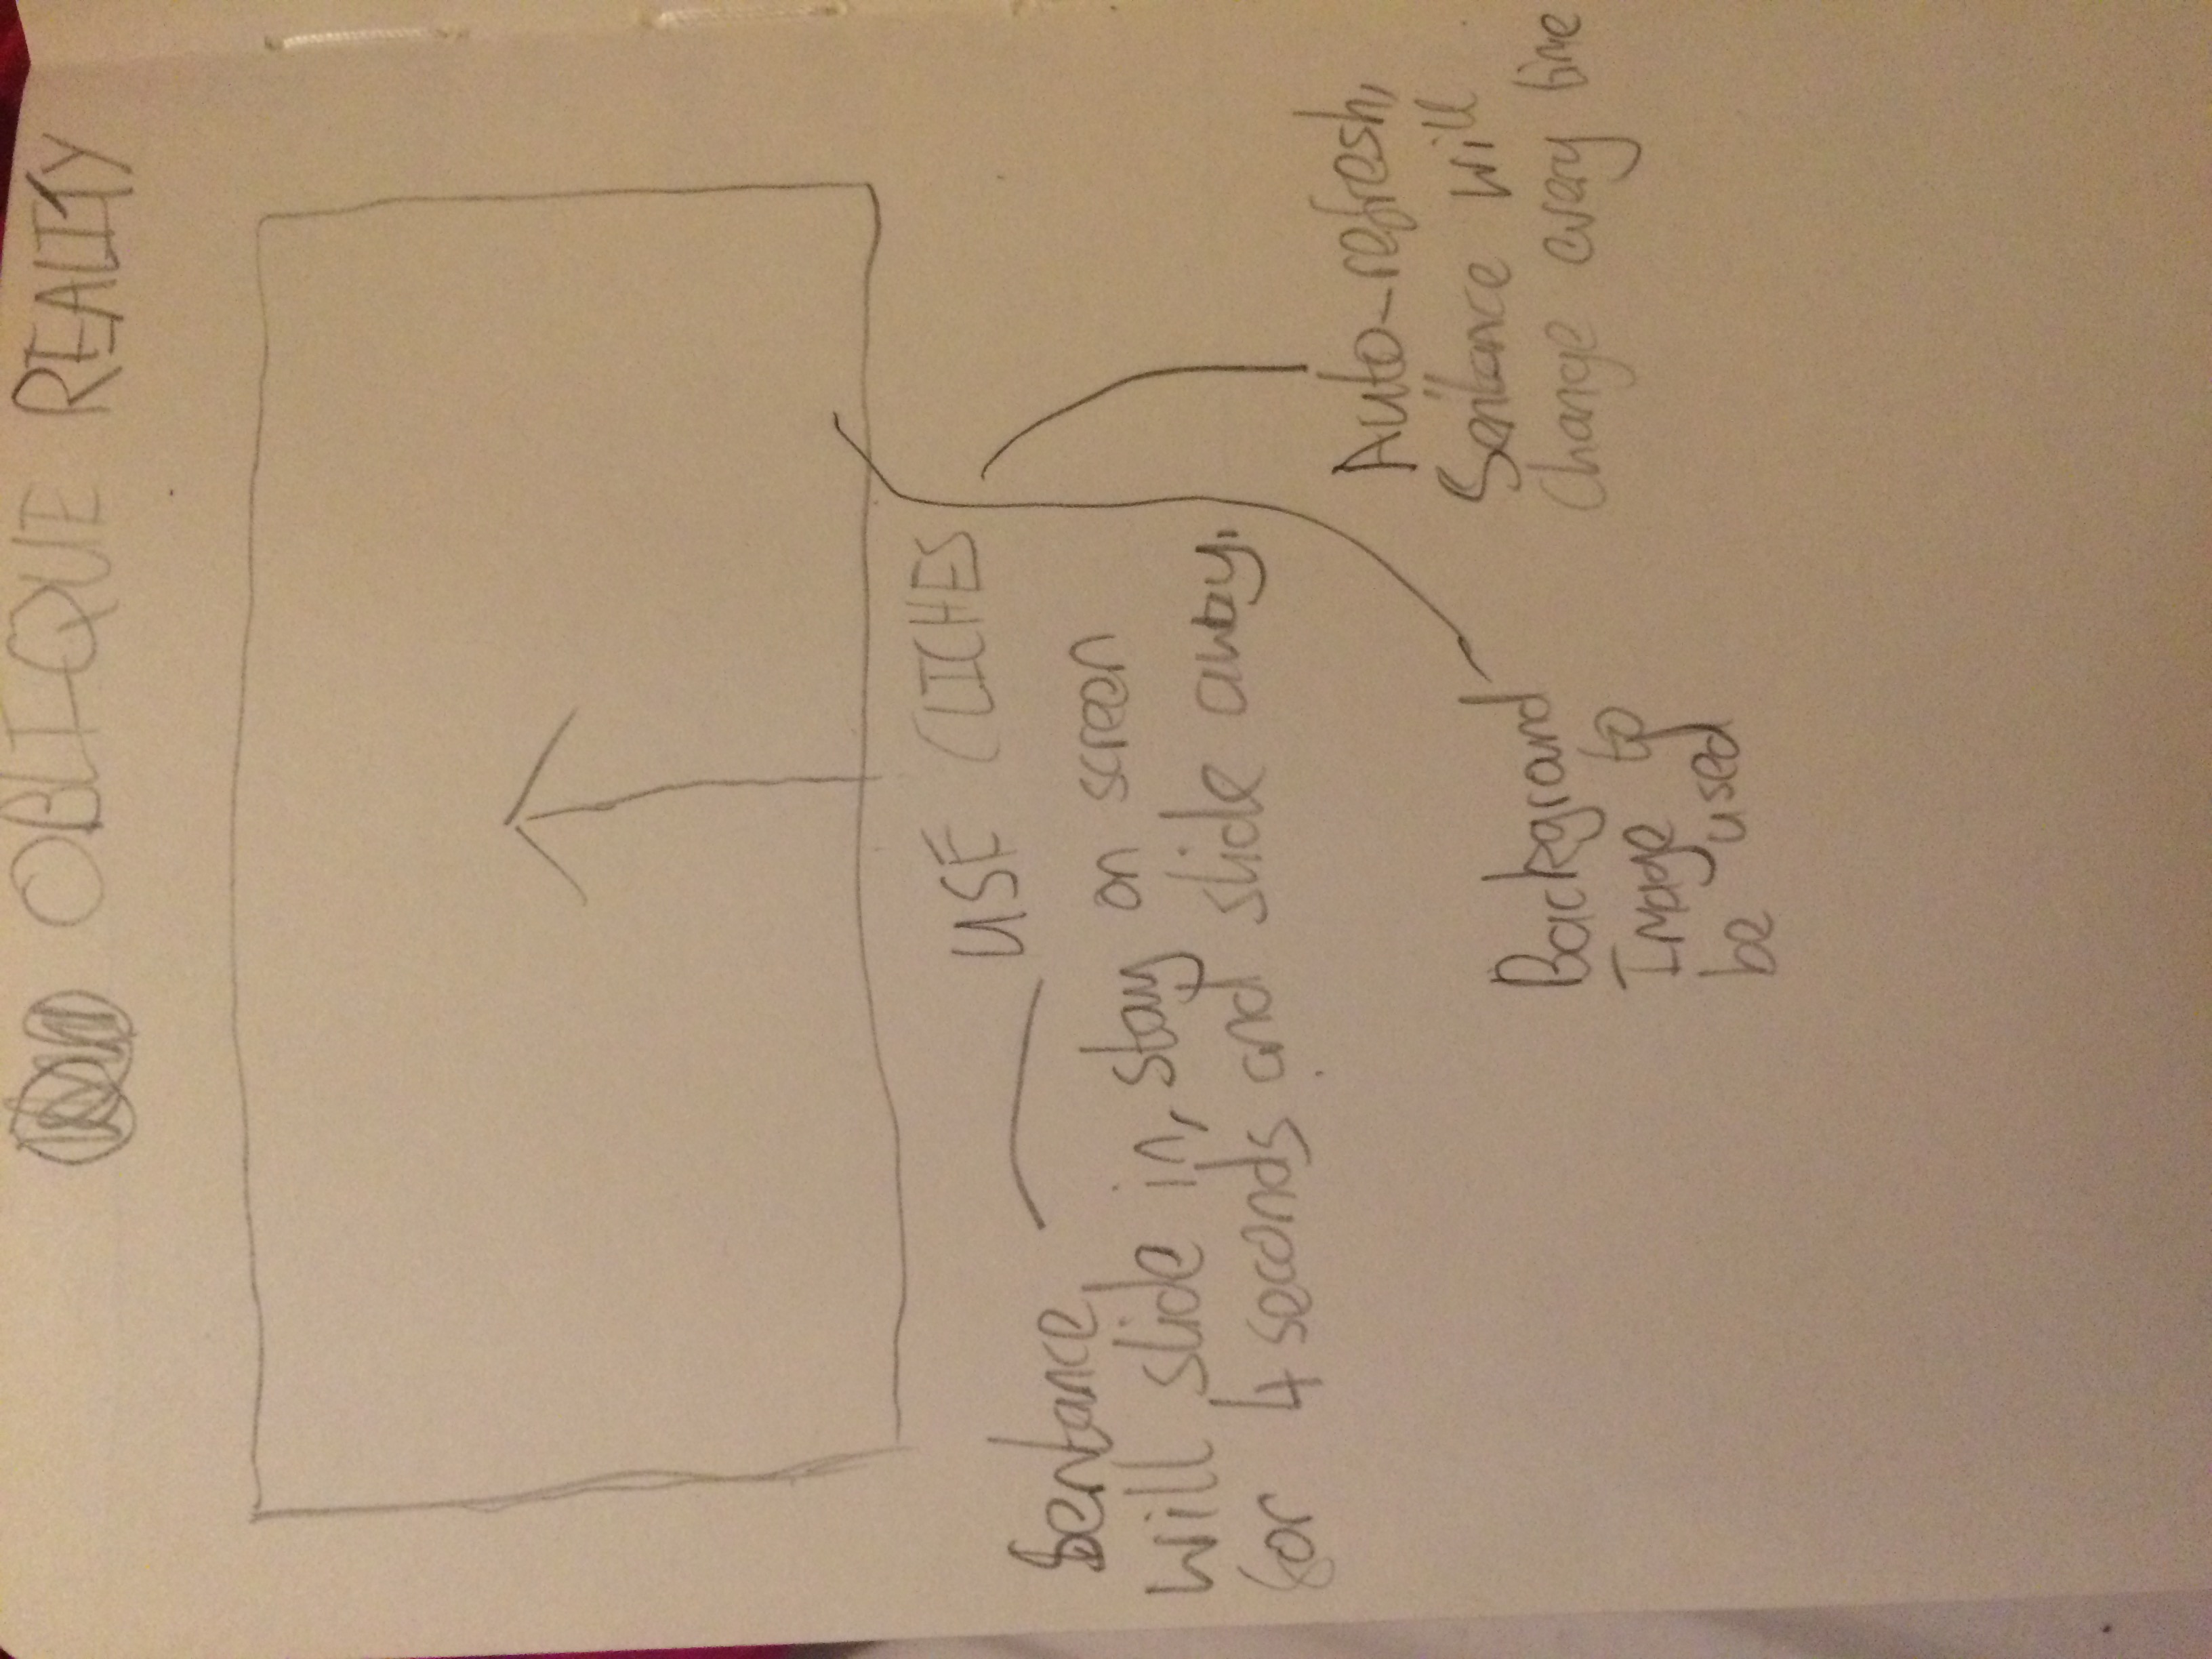 OBLIQUE REALITY
USE CLICHES
Sentance
will slide in, stay on screen
for 4 seconds and slide away.
Auto-refresh,
Sentance will
change every time
Background
Image to
be used